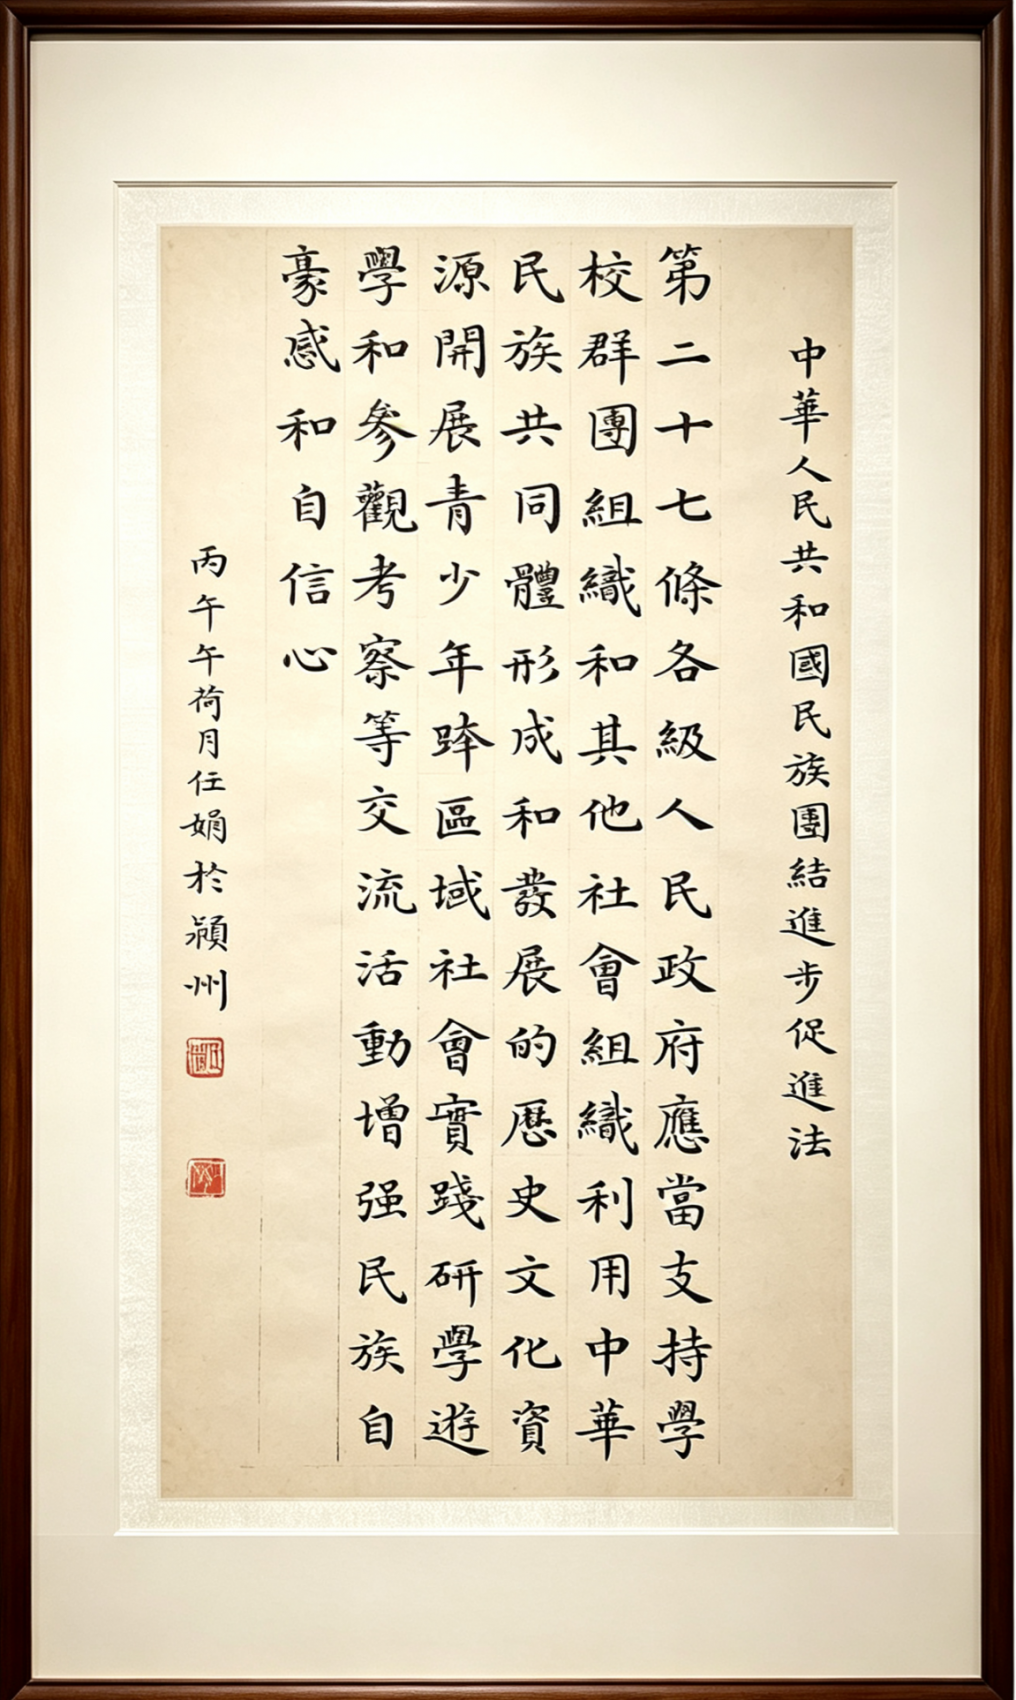 中華人民共和國民族團結進步促進法
第二十七條各級人民政府應當支持學
校群團組織和其他社會組織利用中華
民族共同體形成和發展的歷史文化資
源開展青少年跨區域社會實踐研學遊
學和參觀考察等交流活動增强民族自
豪感和自信心
丙午午荷月任娟於潁州